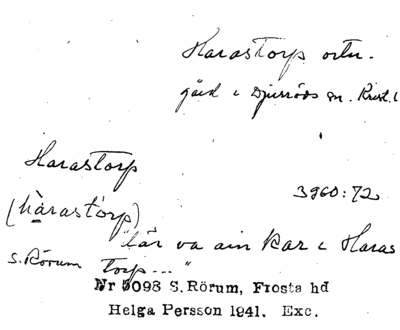 Harastorp ortn.
gård i Djurröds sn. Krist. l
Harastorp
3960:72
(hàrastårp)
"där va ain kar i Haras
S. Rörum torp..."
Nr 5098 S.Rörum, Frosta hd
Helga Persson 1941. Exc.